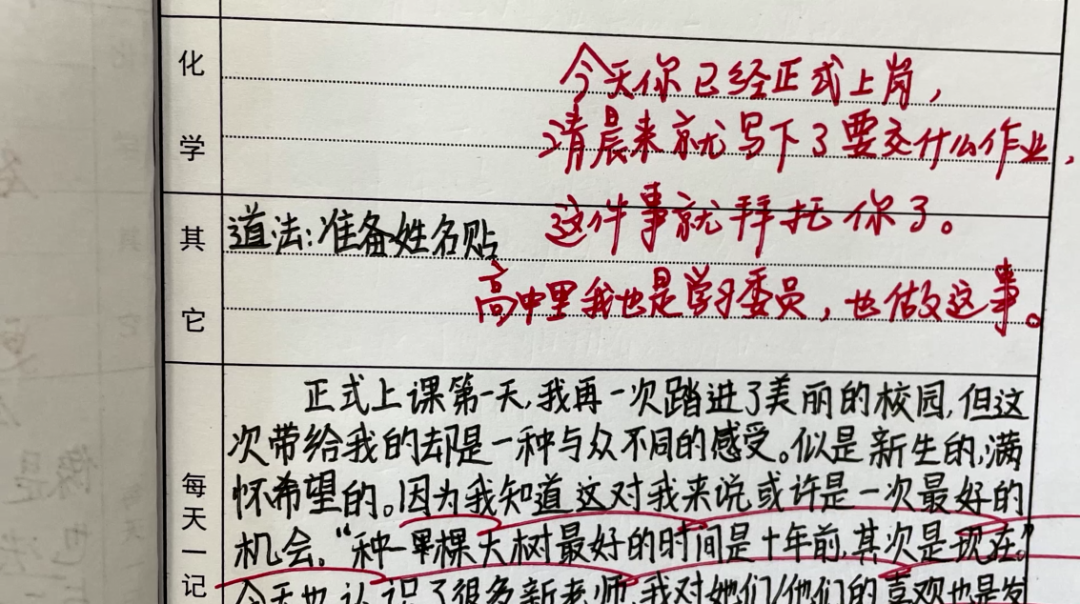 化
学
今天你已经正式上岗，
清晨来就写下了要交什么作业，
这件事就拜托你了。
其
它
道法:准备姓名贴
高中里我也是学习委员，也做这事。
每
天
一
记
正式上课第一天,我再一次踏进了美丽的校园,但这
次带给我的却是一种与众不同的感受。似是新生的,满
怀希望的。因为我知道这对我来说或许是一次最好的
机会。“种一棵大树最好的时间是十年前,其次是现在。”
今天也认识了很多新老师,我对她们/他们的喜欢也是发